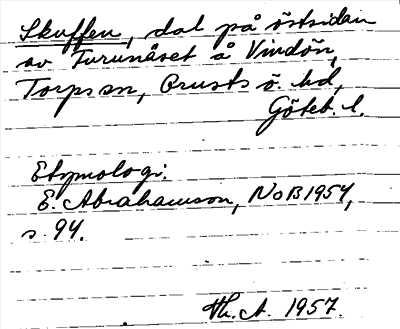 Skuffen, dal på östsidan
av Furunåset å Vindön,
Torps sn, Orusts ö. hd,
Göteb. l.
Etymologi:
E. Abrahamson, NoB 1954,
s. 94.
Th. A. 1957.